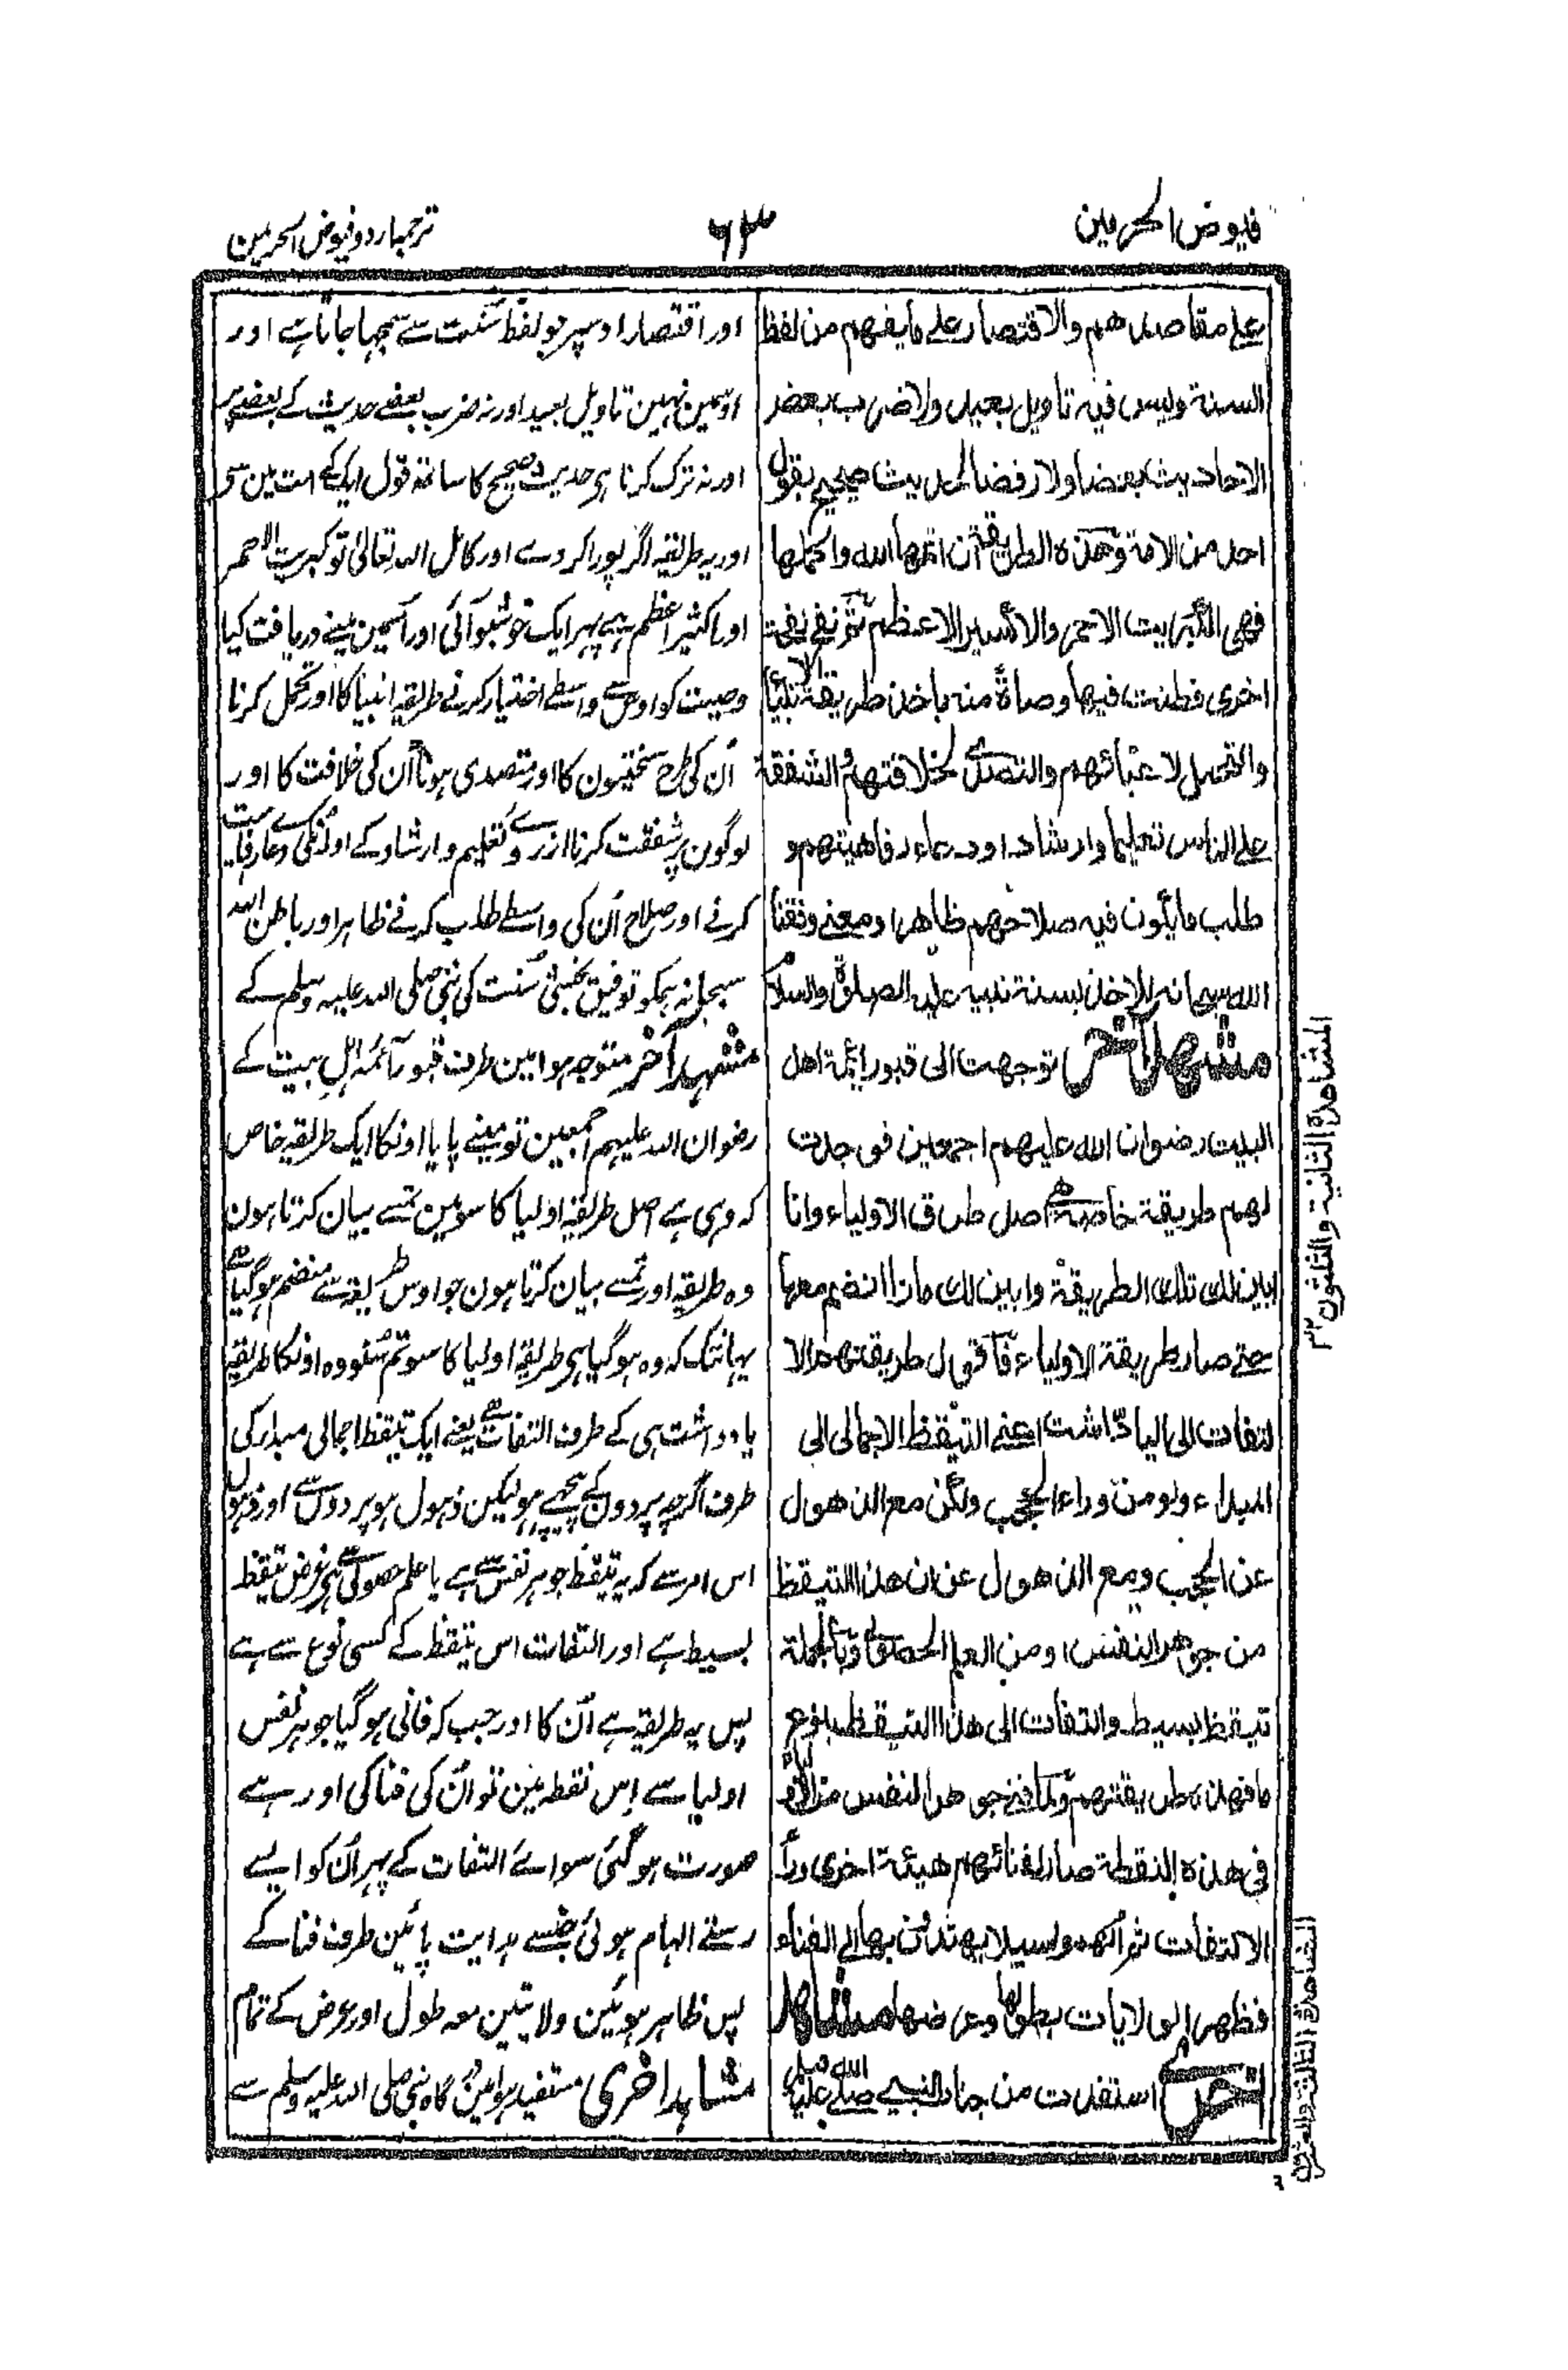 فیوض الحرمین
۶۳
ترجمہ اردو فیوض الحرمین
علے مقاصدهم والاقتصار علے ما يفهم من لفظ
السنة وليس فيه تاويل بعيد ولا ضرب بعض
الاحاديث بعضا ولا رفضا لحديث صحيح بقول
احد من الامة وهذه الطريقة ان اتمها الله واكملها
فهى الكبريت الاحمر والاكسير الاعظم ثم نفے نفحة
اخرى فطنت فيها وصاة منه باخذ طريقة الانبيا
والتحمل لاعبائهم والتصدى لخلافتهم والشفقة
علے الناس تعليما وارشادا ودعاء رفاهيتهم و
طلب ما يكون فيه صلاحهم ظاهرا ومعنے وفقنا
الله سبحانه للاخذ بسنة نبيه عليه الصلوة والسلام
مشهد آخر توجهت الى قبور ائمة اهل
البيت رضوان الله عليهم اجمعين فوجدت
لهم طريقة خاصة هے اصل طرق الاولياء وانا
ابين لك تلك الطريقة وابين لك ماذا انضم معها
حتے صار طريقة الاولياء فاقول طريقتهم الا
لتفات الى الياد داشت اعنے التيقظ الاجمالى الى
المبداء ولو من وراء الحجب ولكن مع الذهول
عن الحجب ومع الذهول عن ان هذا التيقظ
من جوهر النفس او من العلم الحصولى وبالجملة
تيقظ بسيط والتفات الى هذا التيقظ بنوع
ما فهذه طريقتهم ولما فنے جوهر النفس من الاولياء
فى هذه النقطة صار لفنائهم هيئة اخرى وراء
الالتفات ثم الهموا سبيلا يهتدون بها الى الفناء
فظهر الولايات بطولها وعرضها مشاهد
اخرى استفدت من جناب النبے صلے الله عليه وسلم
اور اقتصار اوسپر جو لفظ سُنت سے سمجہا جاتا ہے اور
اوسمین نہین تاویل بعید اور نہ ضرب بعضے حدیث کے بعضے پر
اور نہ ترک کرنا ہر حدیث صحیح کا ساتھ قول ایک کے امت مین سے
اور یہ طریقہ اگر پورا کر دے اور کامل اللہ تعالیٰ تو کبریت الاحمر
اور اکثیر اعظم ہے پہر ایک خوشبو آئی اور اُسمین مینے دریافت کیا
وصیت کو اوس سے واسطے اختیار کرنے طریقہ انبیا کا اور تحمل کرنا
اُن کی طرح سختیون کا اور متصدی ہونا اُن کی خلافت کا اور
لوگون پر شفقت کرنا از روے تعلیم و ارشاد کے اور اُنکی دعا رفاہیت کے
کرنے اور صلاح اُن کی واسطے طلب کرنے ظاہر اور باطن اللہ
سبحانہ ہمکو توفیق بخشے سُنت کی نبی صلی اللہ علیہ وسلم کے
مشہد آخر متوجہ ہوا مین طرف قبور آئمہ اہل بیت کے
رضوان اللہ علیہم اجمعین تو مینے پایا اونکا ایک طریقہ خاص
کہ وہی ہے اصل طریقہ اولیا کا سو مین تمسے بیان کرتا ہون
وہ طریقہ اور تمسے بیان کرتا ہون جو اوس طریقہ سے منضم ہوگیا ہے
یہانتک کہ وہ ہوگیا ہے طریقہ اولیا کا سو تم سنو وہ اونکا طریقہ
یادداشت ہی کے طرف التفات ہے یعنے ایک تیقظ اجمالی مبدا کی
طرف اگرچہ پردون کے پیچھے ہو لیکن ذہول ہو پردوں سے اور ذہول
اس امر سے کہ یہ تیقظ جوہر نفس سے ہے یا علم حصولی سے ہے غرض تیقظ
بسیط ہے اور التفات اس تیقظ کے کسی نوع سے ہے
پس یہ طریقہ ہے اُن کا اور جب کہ فانی ہوگیا جوہر نفس
اولیا سے اِس نقطہ مین تو اُن کی فنا کی اور ہے
صورت ہوگئی سوائے التفات کے پہر اُن کو ایسے
رستے الہام ہوئی جنسے ہدایت پائین طرف فنا کے
پس ظاہر ہوئین ولایتین معہ طول اور عرض کے تمام
مشاہد اخری مستفید ہوا مین درگاہ نبی صلی اللہ علیہ وسلم سے
المشاهدة الثانية والثلثون ۳۲
المشاهدة الثالثة والثلثون